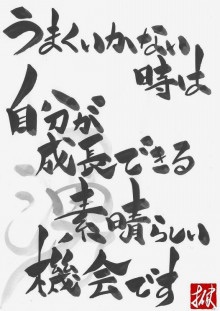 うまくいかない
時は
自分が
成長できる
素晴らしい
機会です